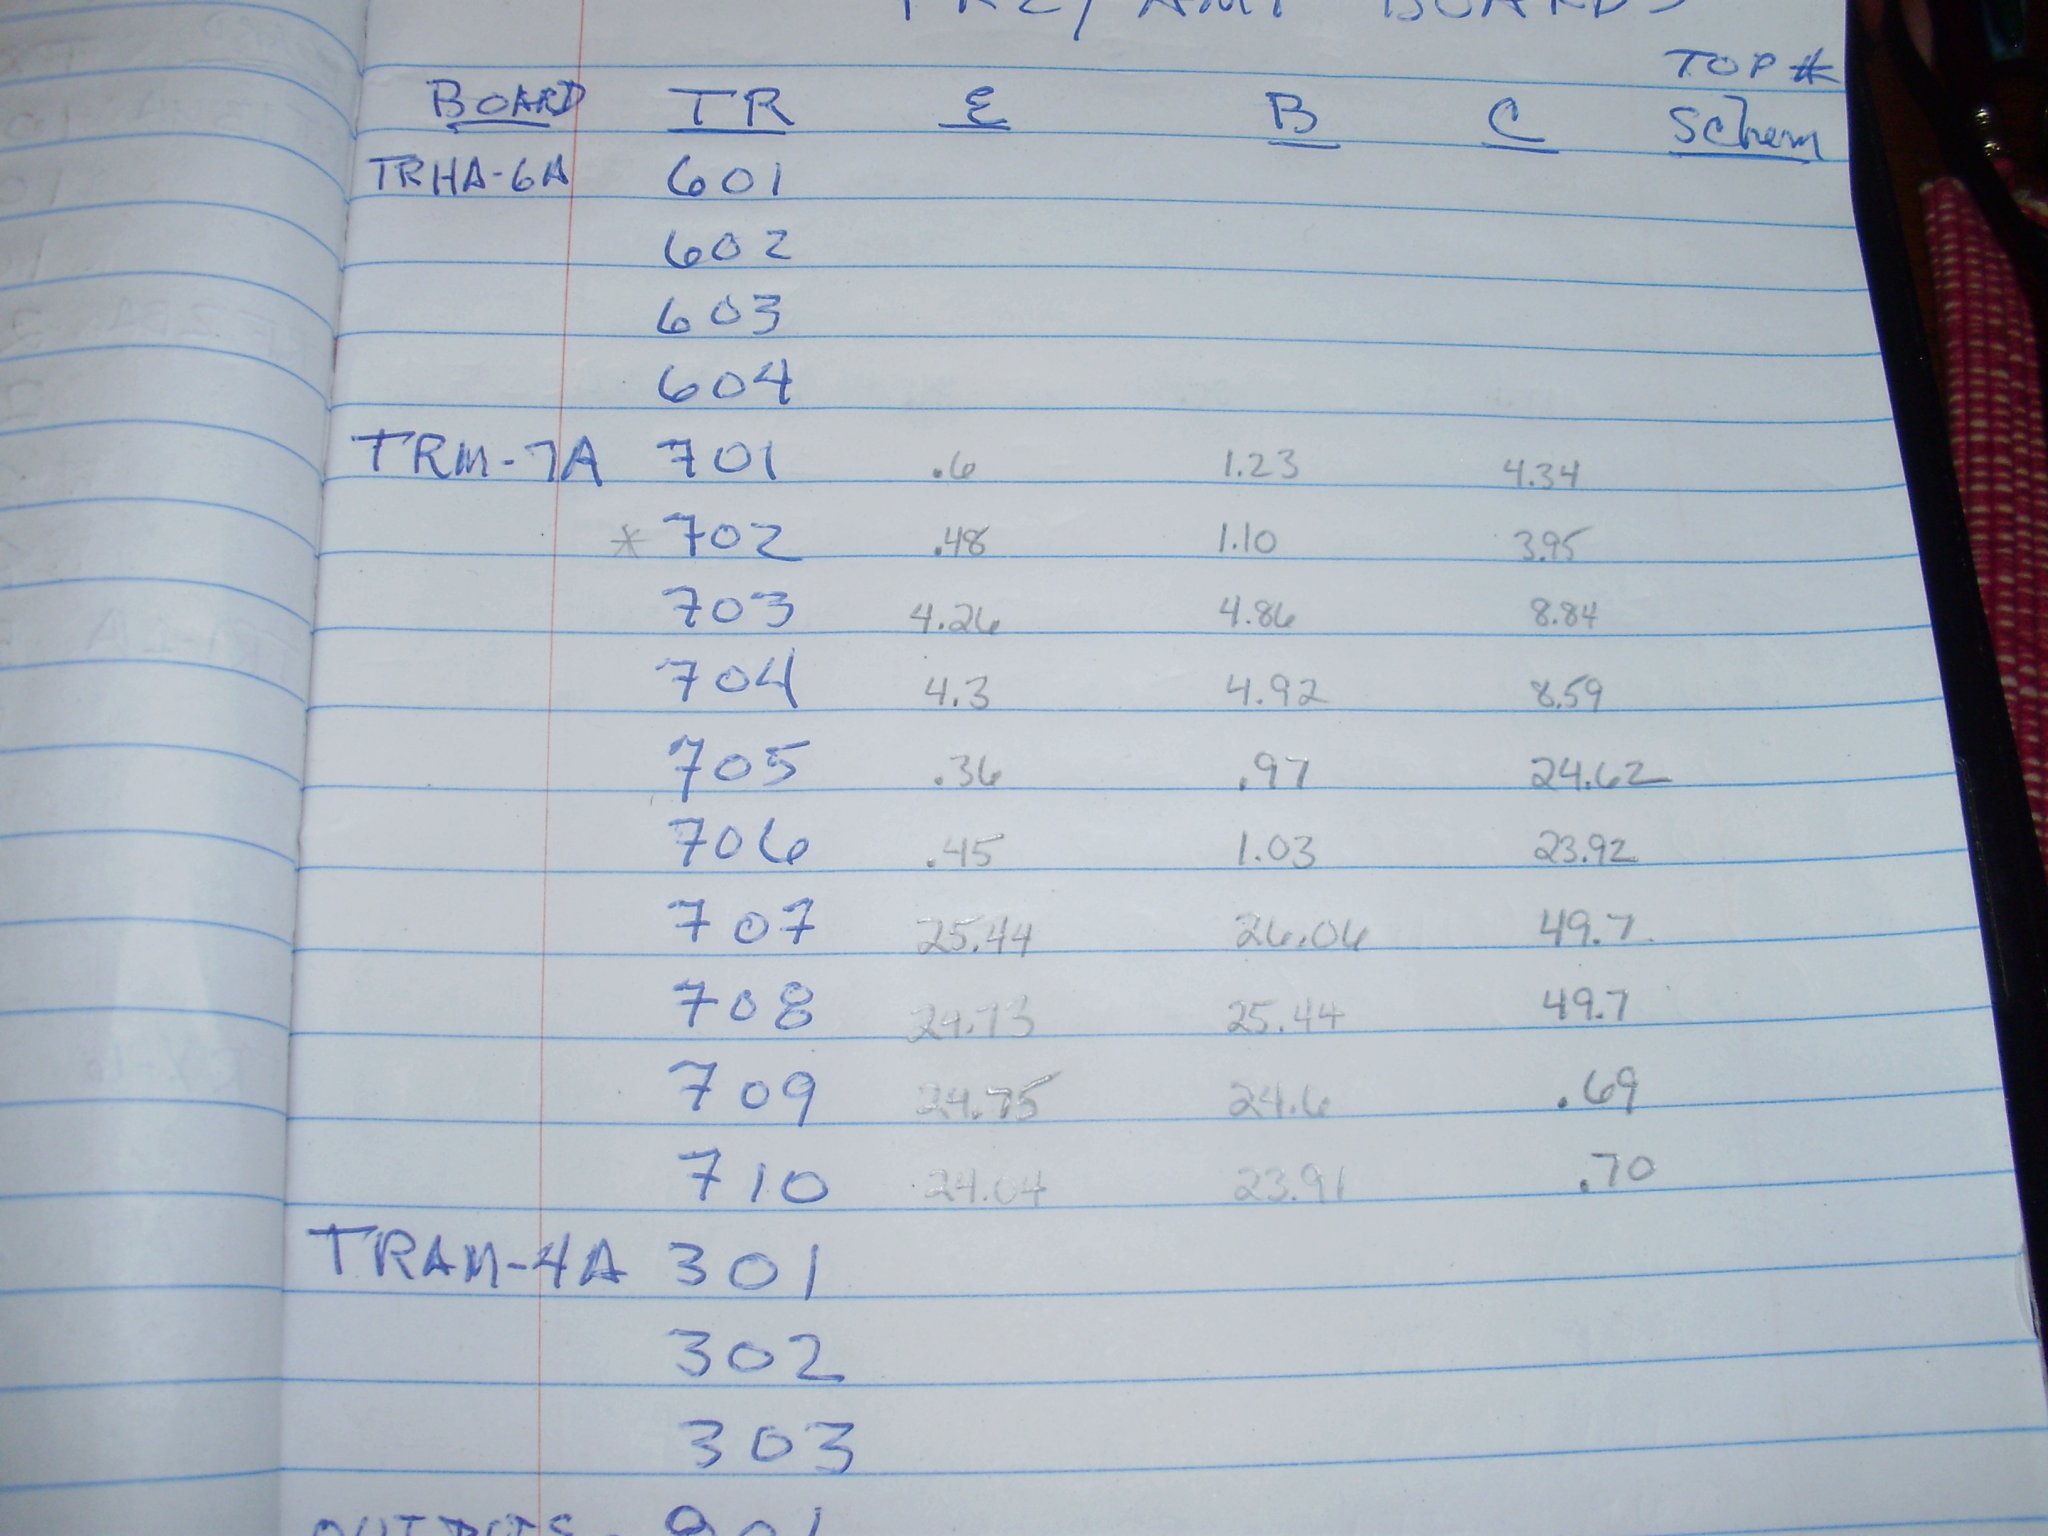 PRE/AMP BOARDS
TOP #
BOARD TR E B C Schem
TRHA-6A 601
602
603
604
TRM-7A 701 .6 1.23 4.34
* 702 .48 1.10 3.95
703 4.26 4.86 8.84
704 4.3 4.92 8.59
705 .36 .97 24.62
706 .45 1.03 23.92
707 25.44 26.06 49.7
708 24.73 25.44 49.7
709 24.75 24.6 .69
710 24.04 23.91 .70
TRAM-4A 301
302
303
OUTPUTS - 901